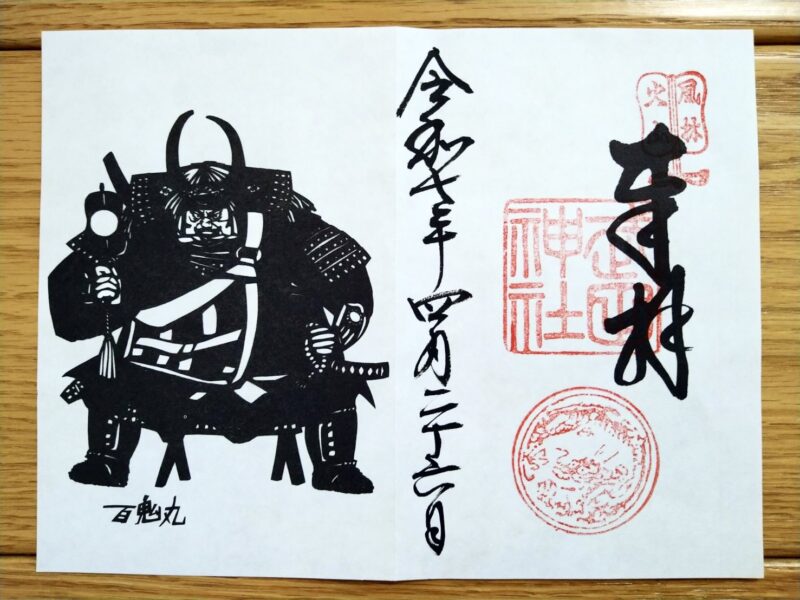 風林
火山
奉拝
武田
神社
令和七年四月二十六日
百鬼丸